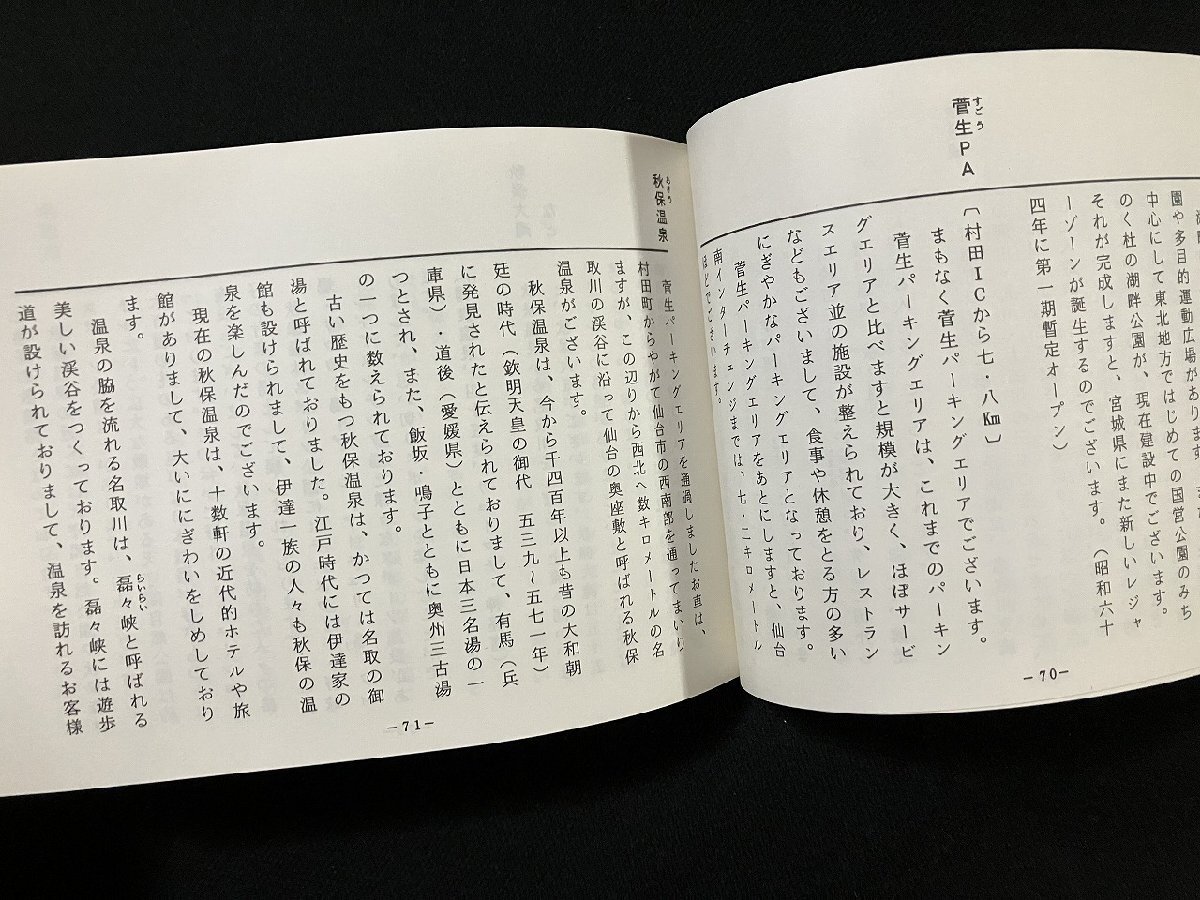 園や多目的運動広場が
中心にして東北地方ではじめての国営公園のみち
のく杜の湖畔公園が、現在建設中でございます。
それが完成しますと、宮城県にまた新しいレジャ
ーゾーンが誕生するのでございます。（昭和六十
四年に第一期暫定オープン）
すごう
菅生PA
〔村田ICから七・八Km〕
まもなく菅生パーキングエリアでございます。
菅生パーキングエリアは、これまでのパーキン
グエリアと比べますと規模が大きく、ほぼサービ
スエリア並の施設が整えられており、レストラン
などもございまして、食事や休憩をとる方の多い
にぎやかなパーキングエリアとなっております。
菅生パーキングエリアをあとにしますと、仙台
南インターチェンジまでは、七・二キロメートル
ほどでございます。
-70-
秋保温泉
菅生パーキングエリアを通過しましたお車は、
村田町からやがて仙台市の西南部を通ってまいり
ますが、この辺りから西北へ数キロメートルの名
取川の渓谷に沿って仙台の奥座敷と呼ばれる秋保
温泉がございます。
秋保温泉は、今から千四百年以上も昔の大和朝
廷の時代（欽明天皇の御代　五三九〜五七一年）
に発見されたと伝えられておりまして、有馬（兵
庫県）・道後（愛媛県）とともに日本三名湯の一
つとされ、また、飯坂・鳴子とともに奥州三古湯
の一つに数えられております。
古い歴史をもつ秋保温泉は、かつては名取の御
湯と呼ばれておりました。江戸時代には伊達家の
館も設けられまして、伊達一族の人々も秋保の温
泉を楽しんだのでございます。
現在の秋保温泉は、十数軒の近代的ホテルや旅
館がありまして、大いににぎわいをしめしており
ます。
温泉の脇を流れる名取川は、磊々峡と呼ばれる
らいらい
美しい渓谷をつくっております。磊々峡には遊歩
道が設けられておりまして、温泉を訪れるお客様
-71-